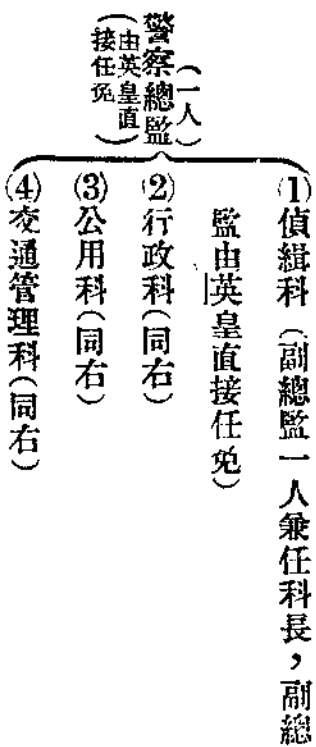 警察總監
(一人)
(由英皇直
接任免)
(1)偵緝科(副總監一人兼任科長,副總
監由英皇直接任免)
(2)行政科(同右)
(3)公用科(同右)
(4)交通管理科(同右)